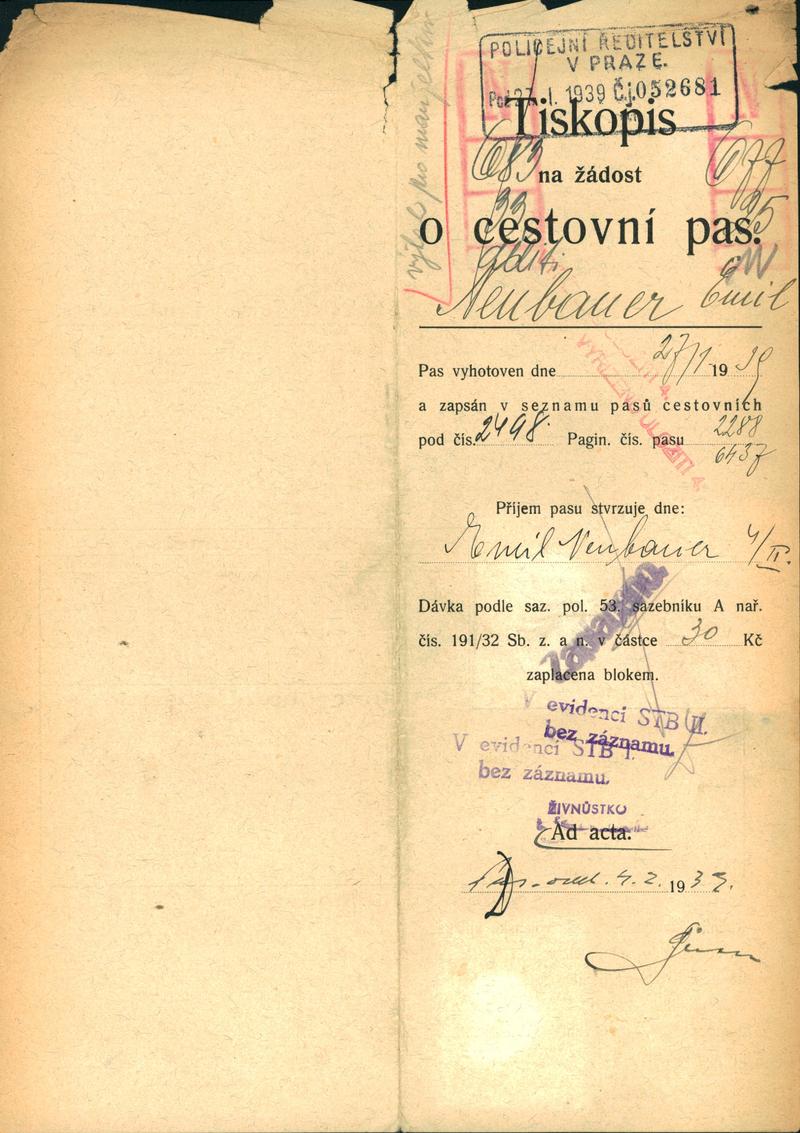 POLICEJNÍ ŘEDITELSTVÍ
V PRAZE.
27. I. 1939 Čj. 052681
Tiskopis
683 na žádost 677
33 o cestovní pas. 95
Neubauer Emil
Pas vyhotoven dne 27/1 19 39
a zapsán v seznamu pasů cestovních
pod čís. 2498. Pagin. čís. pasu 2288
6437
Příjem pasu stvrzuje dne:
Emil Neubauer 4/II.
Dávka podle saz. pol. 53. sazebníku A nař.
čís. 191/32 Sb. z. a n. v částce 30 Kč
zaplacena blokem.
Zaplaceno.
V evidenci STB II.
bez záznamu.
V evidenci STB I.
bez záznamu.
ŽIVNŮSTKO
Ad acta.
4. 2. 1939.